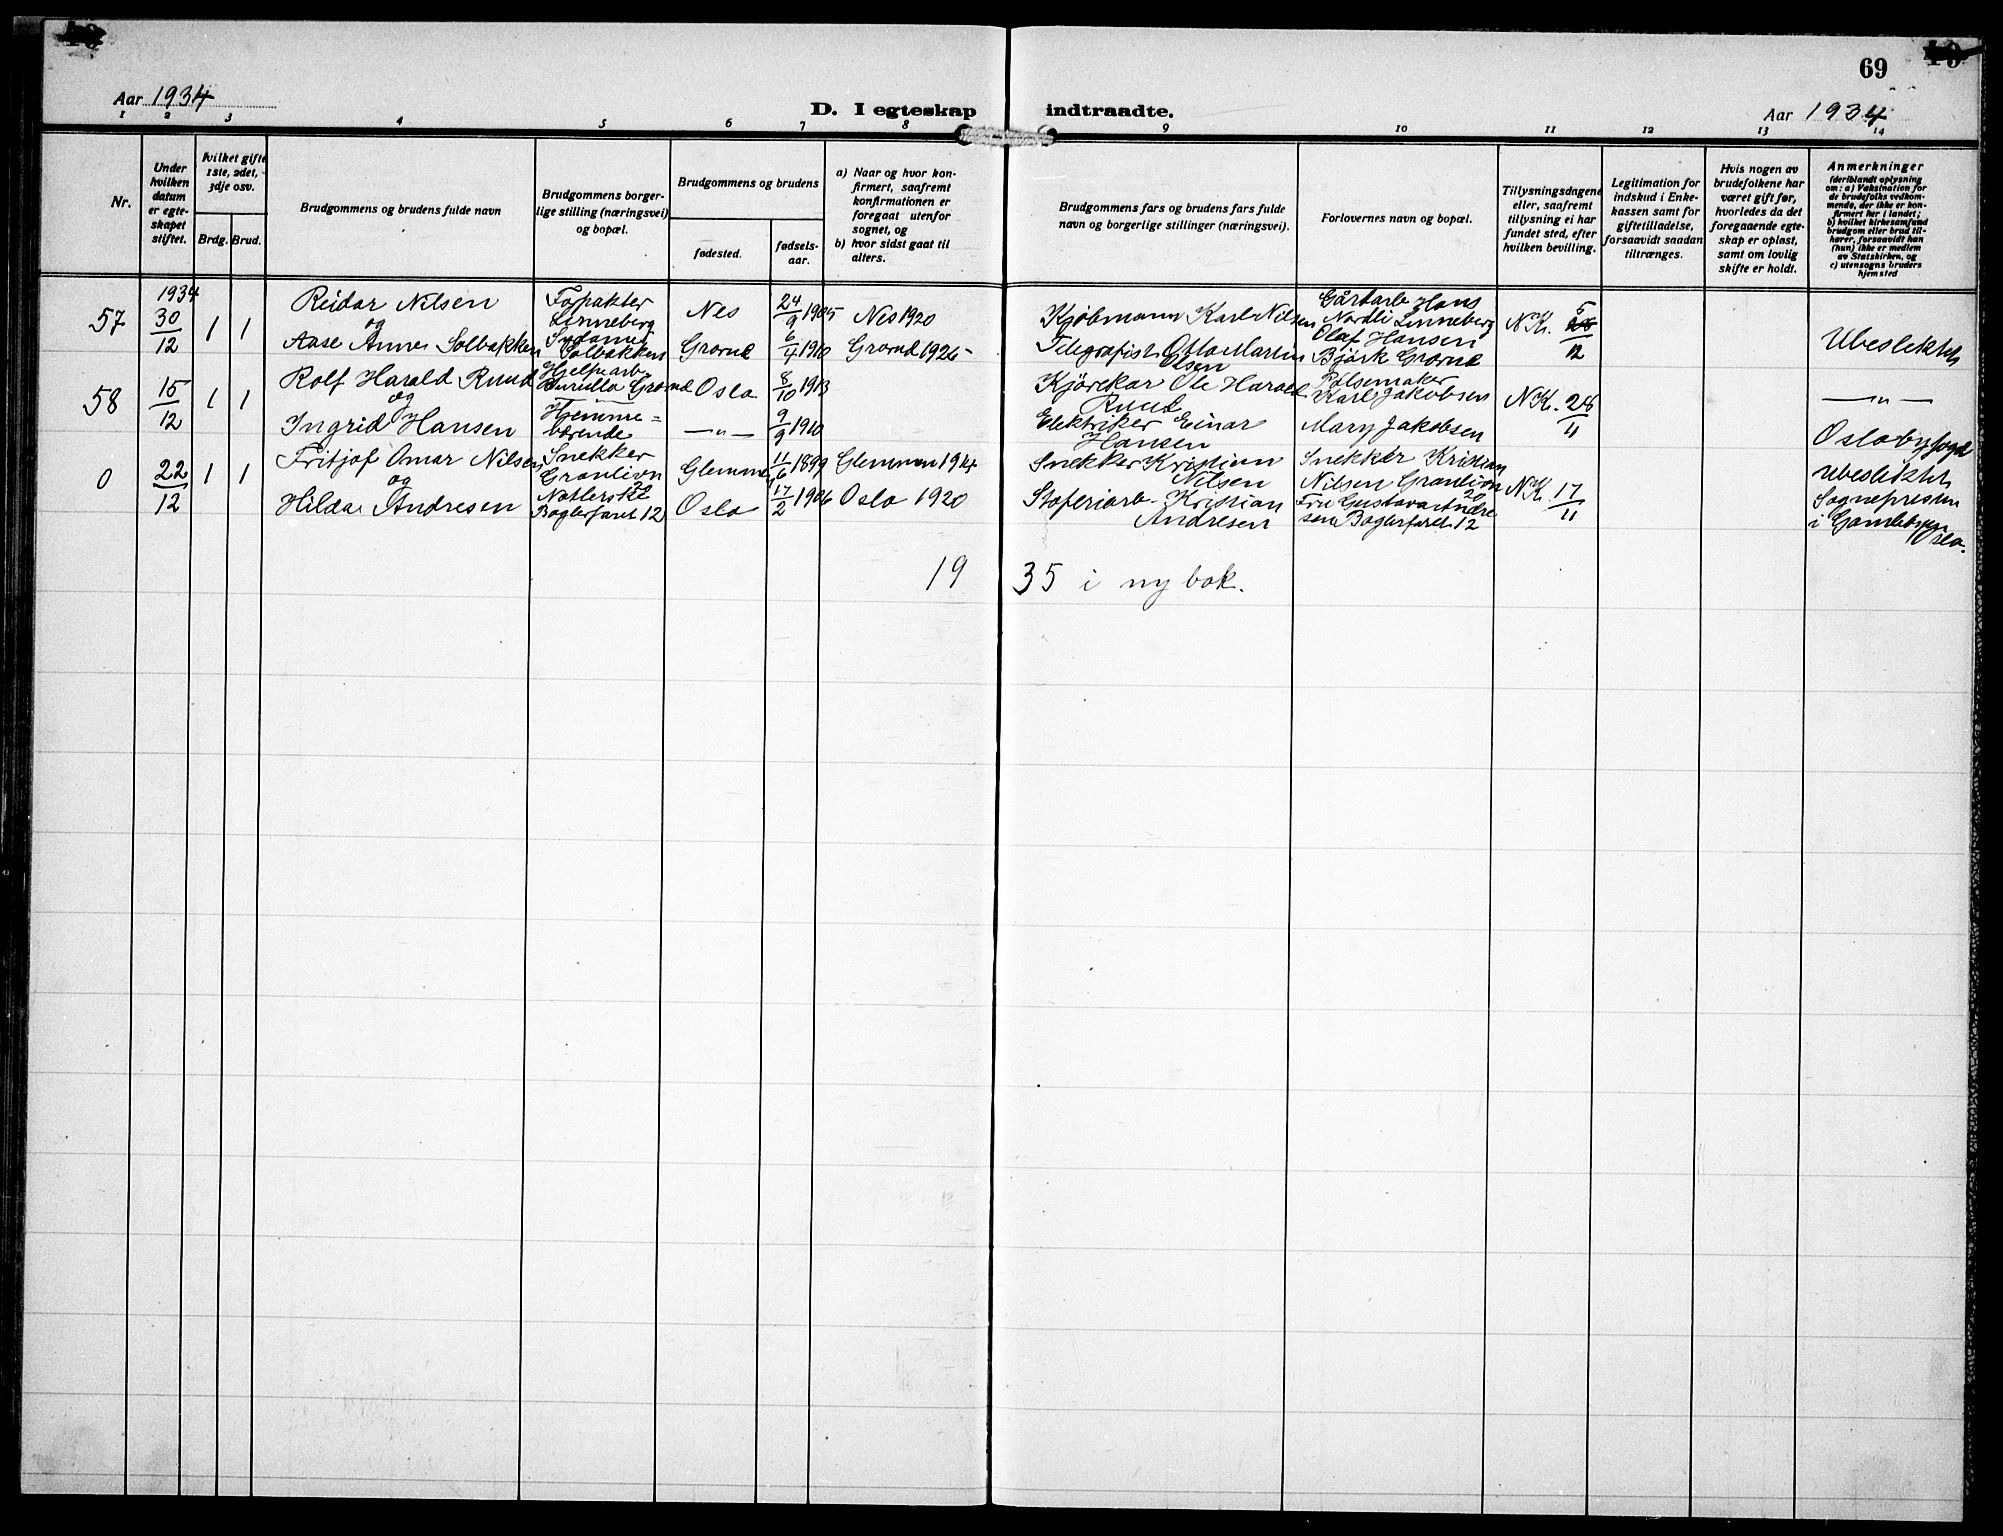 69
Aar 1934
D. I egteskap indtraadte.
Aar 1934
1 2 3 4 5 6 7 8 9 10 11 12 13 14
Nr.
Under hvilken datum er egteskapet stiftet.
hvilket gifte 1ste, 2det, 3dje osv.
Brdg. Brud.
Brudgommens og brudens fulde navn
Brudgommens borgerlige stilling (næringsvei) og bopæl.
Brudgommens og brudens
fødested.
fødselsaar.
a) Naar og hvor konfirmert, saafremt konfirmationen er foregaat utenfor sognet, og
b) hvor sidst gaat til alters.
Brudgommens fars og brudens fars fulde navn og borgerlige stillinger (næringsvei).
Forlovernes navn og bopæl.
Tillysningsdagene eller, saafremt tillysning ei har fundet sted, efter hvilken bevilling.
Legitimation for indskud i Enkekassen samt for giftetilladelse, forsaavidt saadan tiltrænges.
Hvis nogen av brudefolkene har været gift før, hvorledes da det foregaaende egteskap er opløst, samt om lovlig skifte er holdt.
Anmerkninger
(deriblandt oplysning om: a) Vaksination for de brudefolks vedkommende, der ikke er konfirmert her i landet; b) hvilket kirkesamfund brudgom eller brud tilhører, forsaavidt han (hun) ikke er medlem av Statskirken, og c) utensogns bruders hjemsted
1934
57 30/12 1 1 Reidar Nilsen og Aase Anne Solbakken
Linneberg
Solbakken
Nes 24/9 1905 Nes 1920
Grorud 6/4 1910 Grorud 1926
Kjøbmann Karl Nilsen
Telegrafist Otto Martin Olsen
Gårdarb Hans Nordli Linneberg
Olaf Hansen Bjørk Grorud
N.K. 5/12
Ubeslektet
58 15/12 1 1 Rolf Harald Ruud og Ingrid Hansen
Hjelpearb. Grorud
Hjemmeværende
Oslo 8/10 1913
—„— 9/9 1910
Kjørekar Ole Harald Ruud
Elektriker Einar Hansen
Pølsemaker Karl Jakobsen
Mary Jakobsen
N.K. 28/11
—„—
Oslo byfogd
0 22/12 1 1 Fritjof Omar Nilsen og Hilda Andresen
Snekker Granlivn 22
Baglerfaret 12
Glemmen 11/6 1899 Glemmen 1914
Oslo 17/2 1906 Oslo 1920
Snekker Kristian Nilsen
Støperiarb. Kristian Andresen
Snekker Kristian Nilsen Granlivn 20
Fru Gustava Andresen Baglerfaret 12
N.K. 17/11
Ubeslektet
Sognepresten i Gamlebyen Oslo.
1935 i ny bok.